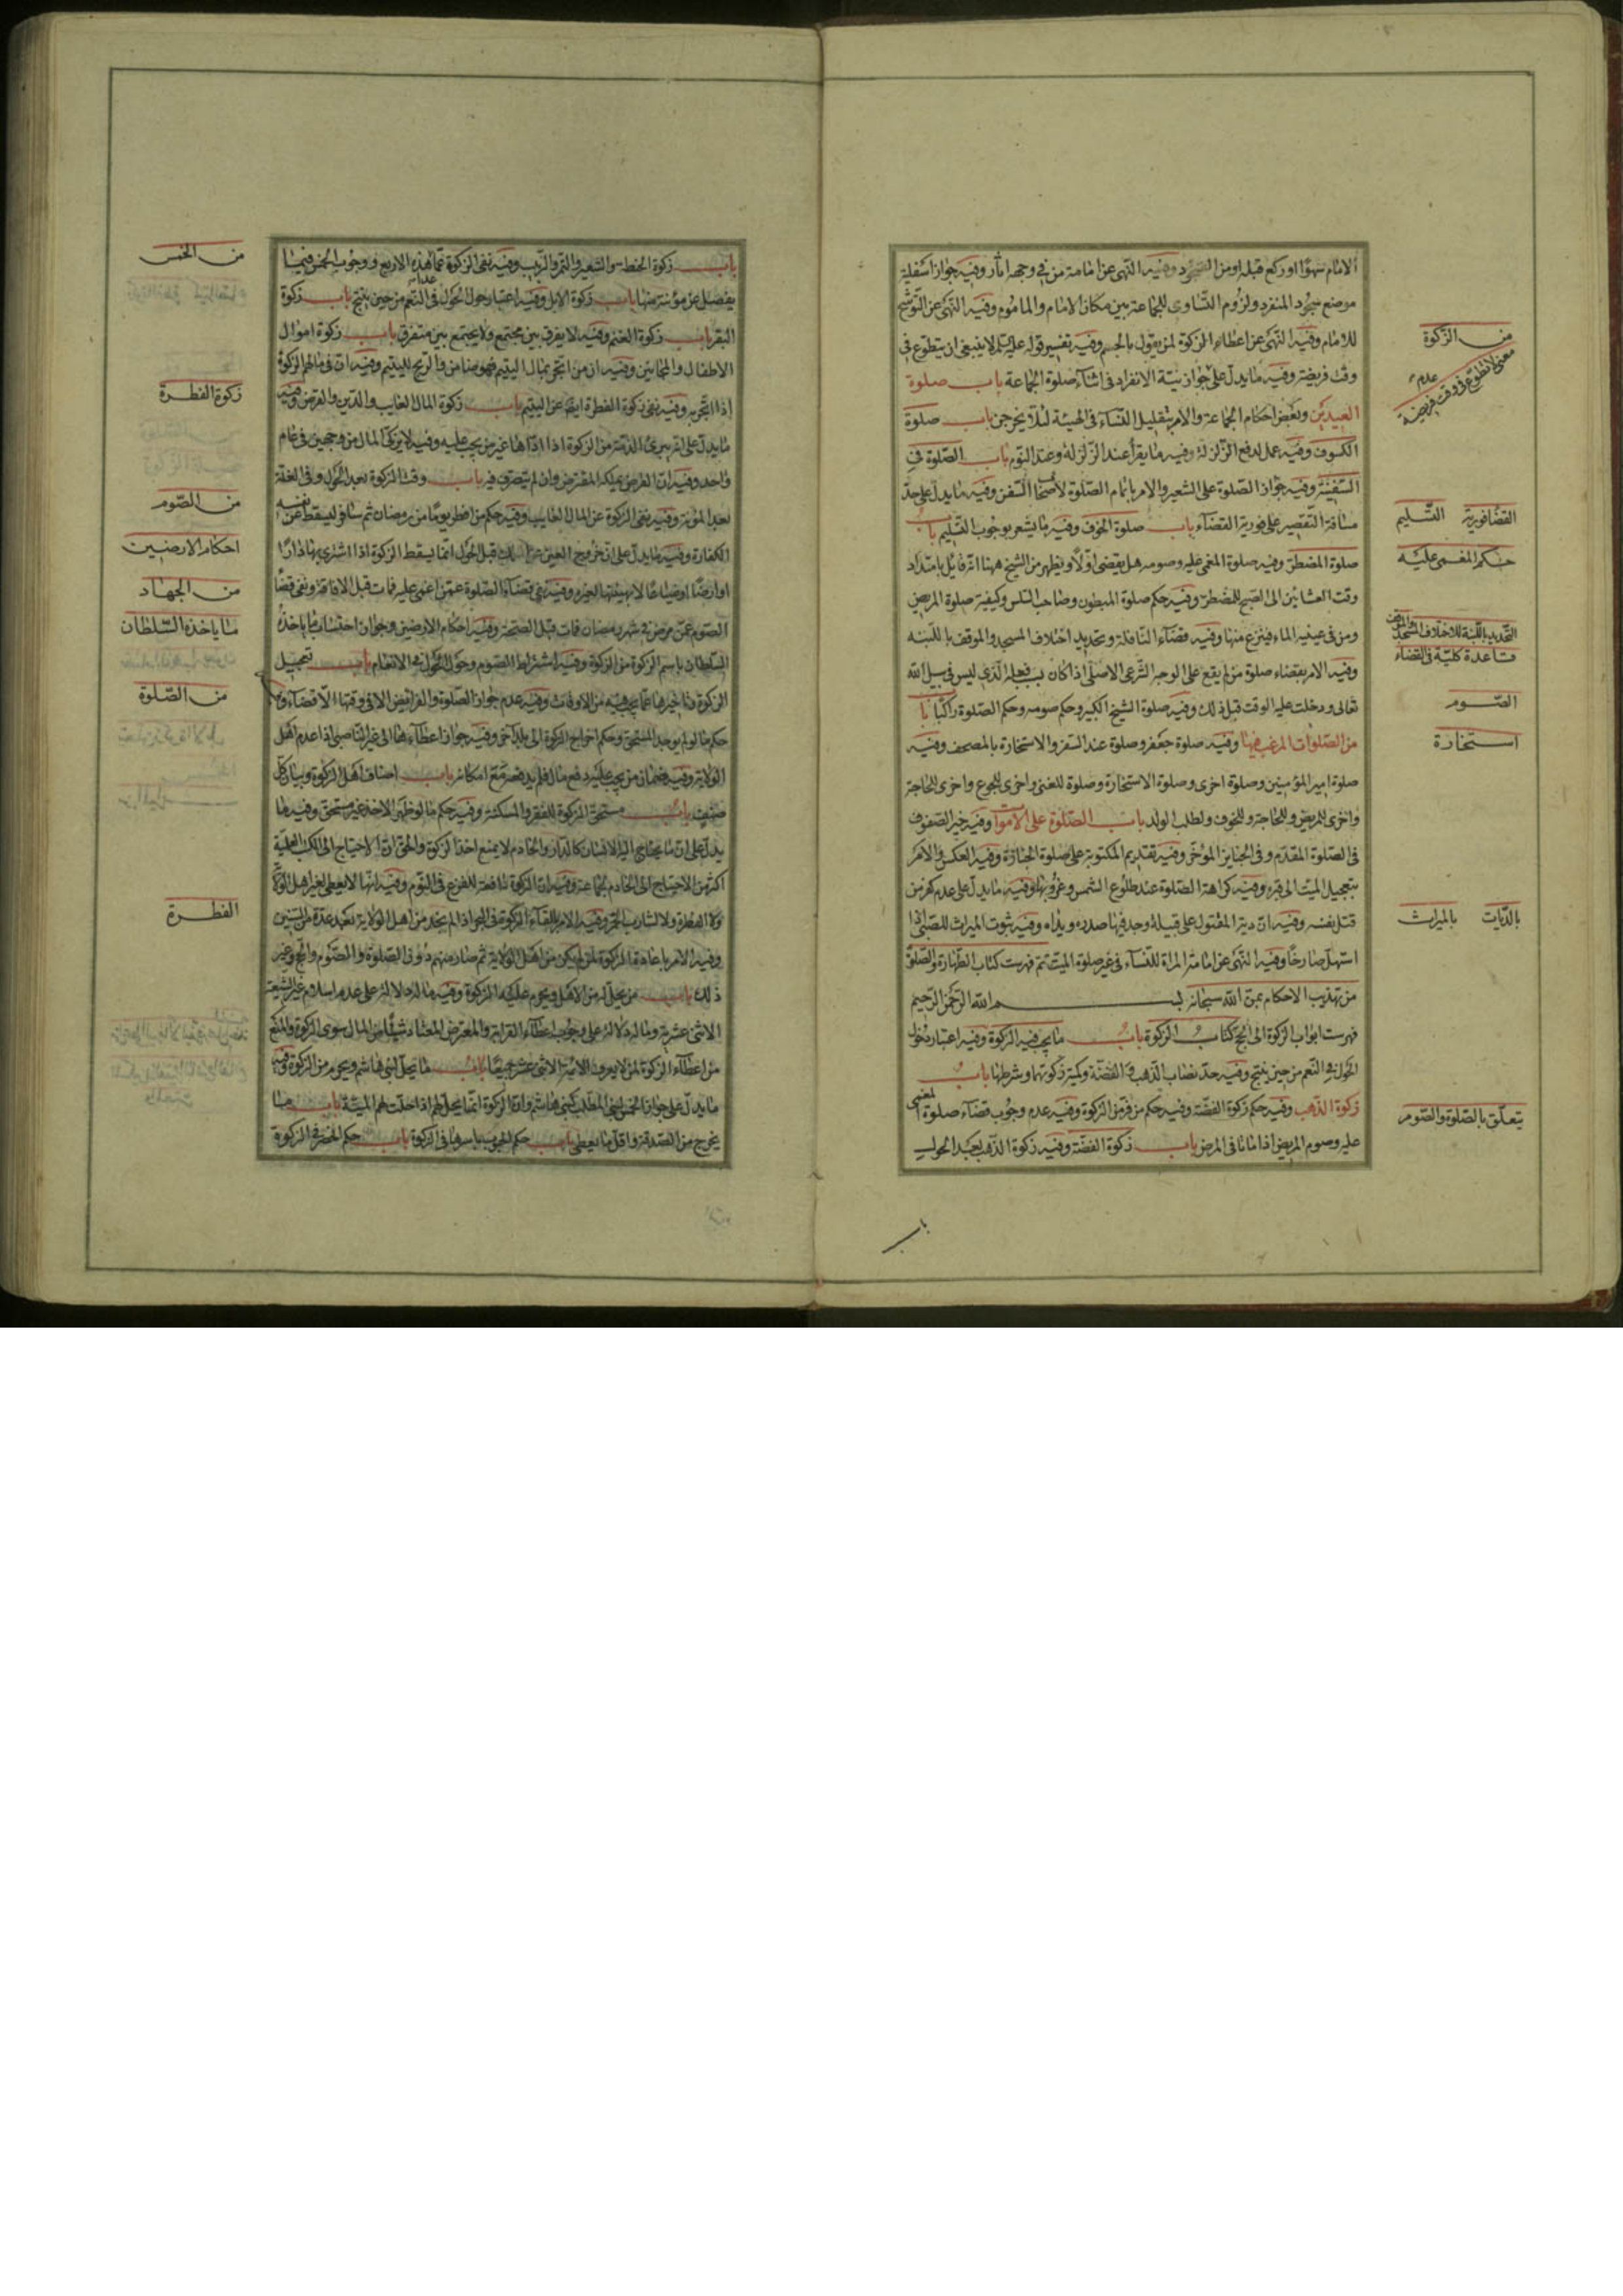 الامام سهوًا او ركع قبله او من السجود وفيه النهى عن امامة من فى وجهه اثار وفيه جواز اسفلية
موضع سجود المنفرد ولزوم التساوى للجماعة بين مكان الامام والماموم وفيه النهى عن التوشح
للامام وفيه النهى عن اعطاء الزكوة لمن يقول بالجسم وفيه تفسير قوله عليه لا ينبغى ان يتطوع فى
وقت فريضة وفيه ما يدل على جواز نية الانفراد فى اثناء صلوة الجماعة باب صلوة
العيدين وبعض احكام الجماعة والامر بتقليل النساء فى الهيئة لئلا يخرجن باب صلوة
الكسوف وفيه عمل لدفع الزلزلة وفيه ما يقرأ عند الزلزلة وعند النوم باب الصلوة فى
السفينة وفيه جواز الصلوة على الشعير والامر باتمام الصلوة لاصحاب السفن وفيه ما يدل على حد
مسافة التقصير على فورية القضاء باب صلوة الخوف وفيه ما يشعر بوجوب التسليم باب
صلوة المضطر وفيه صلوة المغمى عليه وصومه هل يقضى اولا ويظهر من الشيخ ههنا انه قائل بامتداد
وقت العشائين الى الصبح للمضطر وفيه حكم صلوة المبطون وصاحب السلس وكيفية صلوة المريض
ومن فى عينيه الماء فينزع منها وفيه قضاء النافلة وتحديد اختلاف المسجد والموقف باللبنه
وفيه الامر بقضاء صلوة من لم يقع على الوجه الشرعى الاصلى اذا كان بسبب فعله الذى ليس فى سبيل الله
تعالى ودخلت عليه الوقت قبل ذلك وفيه صلوة الشيخ الكبير وحكم صومه وحكم الصلوة راكبا باب
من الصلوات المرغب فيها وفيه صلوة جعفر وصلوة عند السفر والاستخارة بالمصحف وفيه
صلوة امير المؤمنين وصلوة اخرى وصلوة الاستخارة وصلوة للغنى واخرى للجوع واخرى للحاجة
واخرى للمريض وللحاجة وللخوف ولطلب الولد باب الصلوة على الاموات وفيه خير الصفوف
فى الصلوة المقدم وفى الجنايز المؤخر وفيه تقديم المكتوبة على صلوة الجنازة وفيه العكس والامر
بتعجيل الميت الى قبره وفيه كراهة الصلوة عند طلوع الشمس وغروبها وفيه ما يدل على عدم كفر من
قتل نفسه وفيه ان دية المقتول على قبيلة وجد فيها صدره ويداه وفيه ثبوت الميراث للصبى اذا
استهل صارخًا وفيه النهى عن امامة المراة للنساء فى غير صلوة الميت تم فهرست كتاب الطهارة والصلوة
من تهذيب الاحكام بمن الله سبحانه بسم الله الرحمن الرحيم
فهرست ابواب الزكوة الى الحج كتاب الزكوة باب ما يجب فيه الزكوة وفيه اعتبار دخول
الحول فى النعم من حين ينتج وفيه حد نصاب الذهب والفضة وكمية زكوتهما وشرطها باب
زكوة الذهب وفيه حكم زكوة الفضة وفيه حكم من فر من الزكوة وفيه عدم وجوب قضاء صلوة المغمى
عليه وصوم المريض اذا ماتا فى المرض باب زكوة الفضة وفيه زكوة الذهب بعد الحول
من الزكوة
معنى لا تطوع فى وقت فريضة
القضا فورية التسليم
حكم المغمى عليه
التحديد باللبنة للاختلاف المسجد والموقف
قاعدة كلية فى القضاء
الصوم
استخارة
بالديات بالميراث
يتعلق بالصلوة والصوم
باب
باب زكوة الحنطة والشعير والتمر والزبيب وفيه نفى الزكوة عما عدا هذه الاربع ووجوب الخمس فيما
يفضل عن مؤنة سنة منها باب زكوة الابل وفيه اعتبار دخول الحول فى النعم من حين ينتج باب زكوة
البقر باب زكوة الغنم وفيه لا يفرق بين مجتمع ولا يجتمع بين متفرق باب زكوة اموال
الاطفال والمجانين وفيه ان من اتجر بمال اليتيم فهو ضامن والربح لليتيم وفيه ان فى مالهم الزكوة
اذا اتجر به وفيه نفى زكوة الفطرة ايضًا عن اليتيم باب زكوة المال الغايب والدين والقرض وفيه
ما يدل على انه يبرئ الذمة من الزكوة اذا اداها غير من يجب عليه وفيه لا يزكى المال من وجهين فى عام
واحد وفيه ان القرض يملكه المقترض وان لم يتصرف فيه باب وقت الزكوة بعد الحول وفى الغلة
بعد المؤنة وفيه نفى الزكوة عن المال الغايب وفيه حكم من افطر يومًا من رمضان ثم سافر ليسقط عن نفسه
الكفارة وفيه ما يدل على ان خروج العين عن الملك قبل الحول انما يسقط الزكوة اذا اشترى بها دارًا
او ارضًا او ضياعًا لا بهبتها لغيره وفيه نفى قضاء الصلوة عمن اغمى عليه فمات قبل الافاقة ونفى قضا
الصوم عمن مرض فى شهر رمضان فمات قبل الصحة وفيه احكام الارضين وجواز احتساب ما ياخذه
السلطان باسم الزكوة من الزكوة وفيه اشتراط الصوم وحول الحول فى الانعام باب تعجيل
الزكوة وتاخيرها عما يجب فيه من الاوقات وفيه عدم جواز الصلوة والفرايض الا فى وقتها الا قضاء وفيه
حكم ما لو لم يوجد المستحق وحكم اخراج الزكوة الى بلد آخر وفيه جواز اعطاءها الى غير الناصبى اذا عدم اهل
الولاية وفيه ضمان من يجب عليه دفع مال فلم يدفعه مع امكانه باب اصناف اهل الزكوة وبيان كل
صنف باب مستحق الزكوة للفقر والمسكنة وفيه حكم ما لو ظهر الاخذ غير مستحق وفيه ما
يدل على ان ما يحتاج اليه الانسان كالدار والخادم لا يمنع اخذ الزكوة والحق ان الاحتياج الى الكتب العلمية
اكثر من الاحتياج الى الخادم لجماعة وفيه ان الزكوة نافعة للفزع فى النوم وفيه انها لا يعطى لغير اهل الولاية
ولا الفطرة ولا لشارب الخمر وفيه الامر بالقاء الزكوة فى البحر اذا لم يجد من اهل الولاية بعد عدة من السنين
وفيه الامر باعادة الزكوة لمن لم يكن من اهل الولاية ثم صار منهم دون الصلوة والصوم والحج وغير
ذلك باب من يحل له من الاهل ويحرم عليه الزكوة وفيه ما له دلالة على عدم اسلام غير الشيعة
الاثنى عشرية وما له دلالة على وجوب اعطاء القرابة والمعترض المعتاد شيئًا من المال سوى الزكوة والمنع
من اعطاء الزكوة لمن لا يعرف الائمة الاثنى عشر جميعًا باب ما يحل لبنى هاشم ويحرم من الزكوة وفيه
ما يدل على جواز الخمس لبنى المطلب كبنى هاشم وان الزكوة انما يحل لهم اذا حلت لهم الميتة باب ما
يخرج من الصدقة واقل ما يعطى باب حكم الحبوب باسرها فى الزكوة باب حكم الخضر فى الزكوة
من الخمس
زكوة الفطرة
من الصوم
احكام الارضين
من الجهاد
ما ياخذه السلطان
من الصلوة
الفطرة